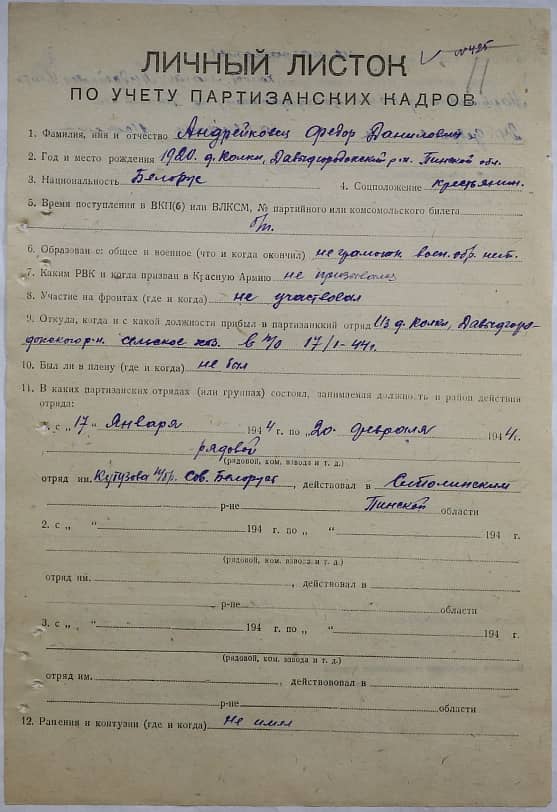 №425
11
ЛИЧНЫЙ ЛИСТОК
ПО УЧЕТУ ПАРТИЗАНСКИХ КАДРОВ
1. Фамилия, имя и отчество Андрейковец Федор Данилович
2. Год и место рождения 1920. д. Колки, Давыдгородокский р-н. Пинской обл.
3. Национальность Белорус 4. Соцположение крестьянин.
5. Время поступления в ВКП(б) или ВЛКСМ, № партийного или комсомольского билета
б/п.
6. Образование: общее и военное (что и когда окончил) не грамотн. воен. обр. нет.
7. Каким РВК и когда призван в Красную Армию не призывался
8. Участие на фронтах (где и когда) не участвовал
9. Откуда, когда и с какой должности прибыл в партизанкий отряд Из д. Колки, Давыдгоро-
докского р-н. сельское хоз. в п/о 17/I-44г.
10. Был ли в плену (где и когда) не был
11. В каких партизанских отрядах (или группах) состоял, занимаемая должность и район действия
отряда:
1. с „17“ Января 1944 г. по „20“ февраля 1944 г.
рядовой
(рядовой, ком. взвода и т. д.)
отряд им. Кутузова п/бр. Сов. Белорус, действовал в Столинским
р-не Пинской области
2. с „ “ 194 г. по „ “ 194 г.
(рядовой, ком. взвода и т. д.)
отряд им. , действовал в
р-не области
3. с „ “ 194 г. по „ “ 194 г.
(рядовой, ком. взвода и т. д.)
отряд им. , действововал в
р-не области
12. Ранения и контузии (где и когда) Не имел